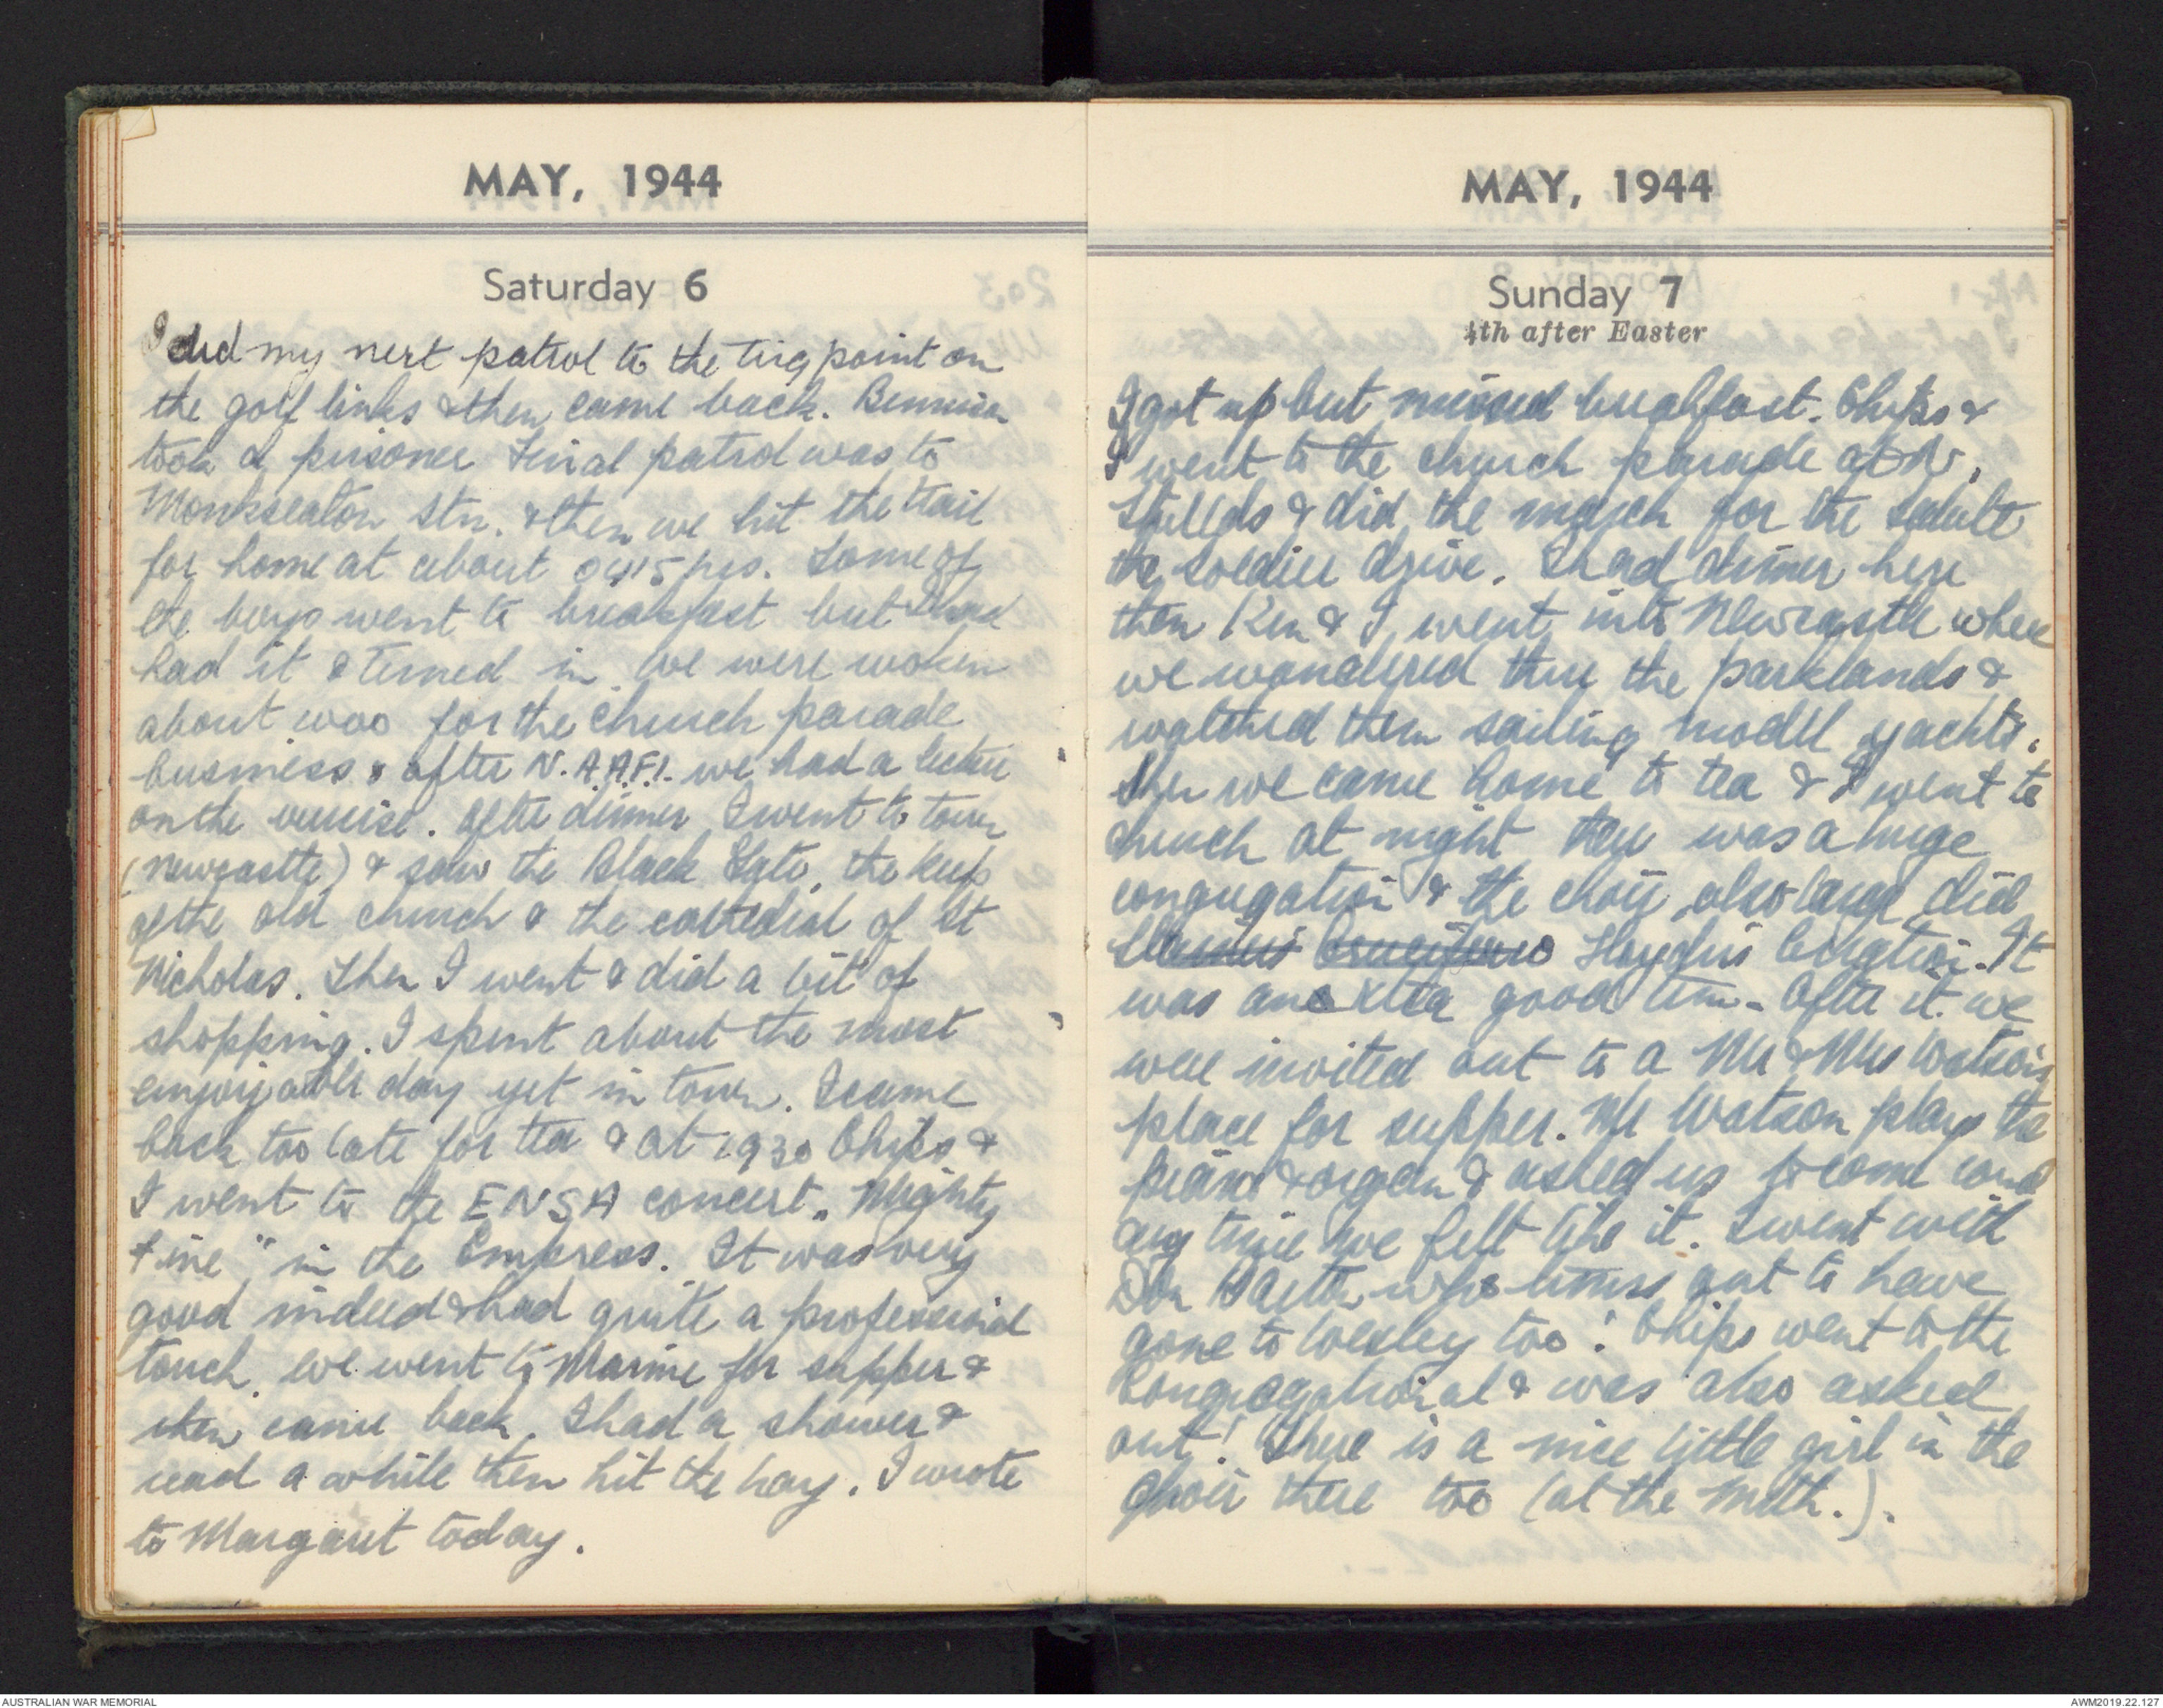 MAY, 1944
Saturday 6
I did my next patrol to the trig point on
the golf links & then came back. Bennison
took a prisoner Final patrol was to
Monkseaton Stn. & then we hit the trail
for home at about 0415 hrs. Some of
the boys went to breakfast but I had
had it & turned in. We were woken
about 1000 for the church parade
business & after N.A.A.F.I. we had a lecture
on the exercise. After dinner I went to town
(Newcastle) & saw the Black Gate, the keep
of the old church & the cathedral of St
Nicholas. Then I went & did a bit of
shopping. I spent about the most
enjoyable day yet in town. I came
back too late for tea & at 1930 Chips &
I went to the ENSA concert. "Mighty
Fine" in the Empress. It was very
good indeed & had quite a professional
touch. We went to Marine for supper &
then came back. I had a shower &
read a while then hit the hay. I wrote
to Margaret today.
MAY, 1944
Sunday 7
4th after Easter
I got up but missed breakfast. Chips &
I went to the church parade at N.
Shields & did the march for the salute
the soldier drive. I had dinner here
then Ken & I went into Newcastle where
we wandered thru the parklands &
watched them sailing model yachts.
Then we came home to tea & I went to
church at night there was a huge
congregation & the choir, also large did
Haydn's Creation. It
was an extra good time. After it we
were invited out to a Mr & Mrs Watson's
place for supper. Mr Watson plays the
piano & organ & asked us to come round
any time we felt like it. I went with
Don who turns out to have
gone to Wesley too! Chips went to the
Congregational & was also asked
out! There is a nice little girl in the
choir there too (at the Meth.).
AUSTRALIAN WAR MEMORIAL
AWM2019.22.127